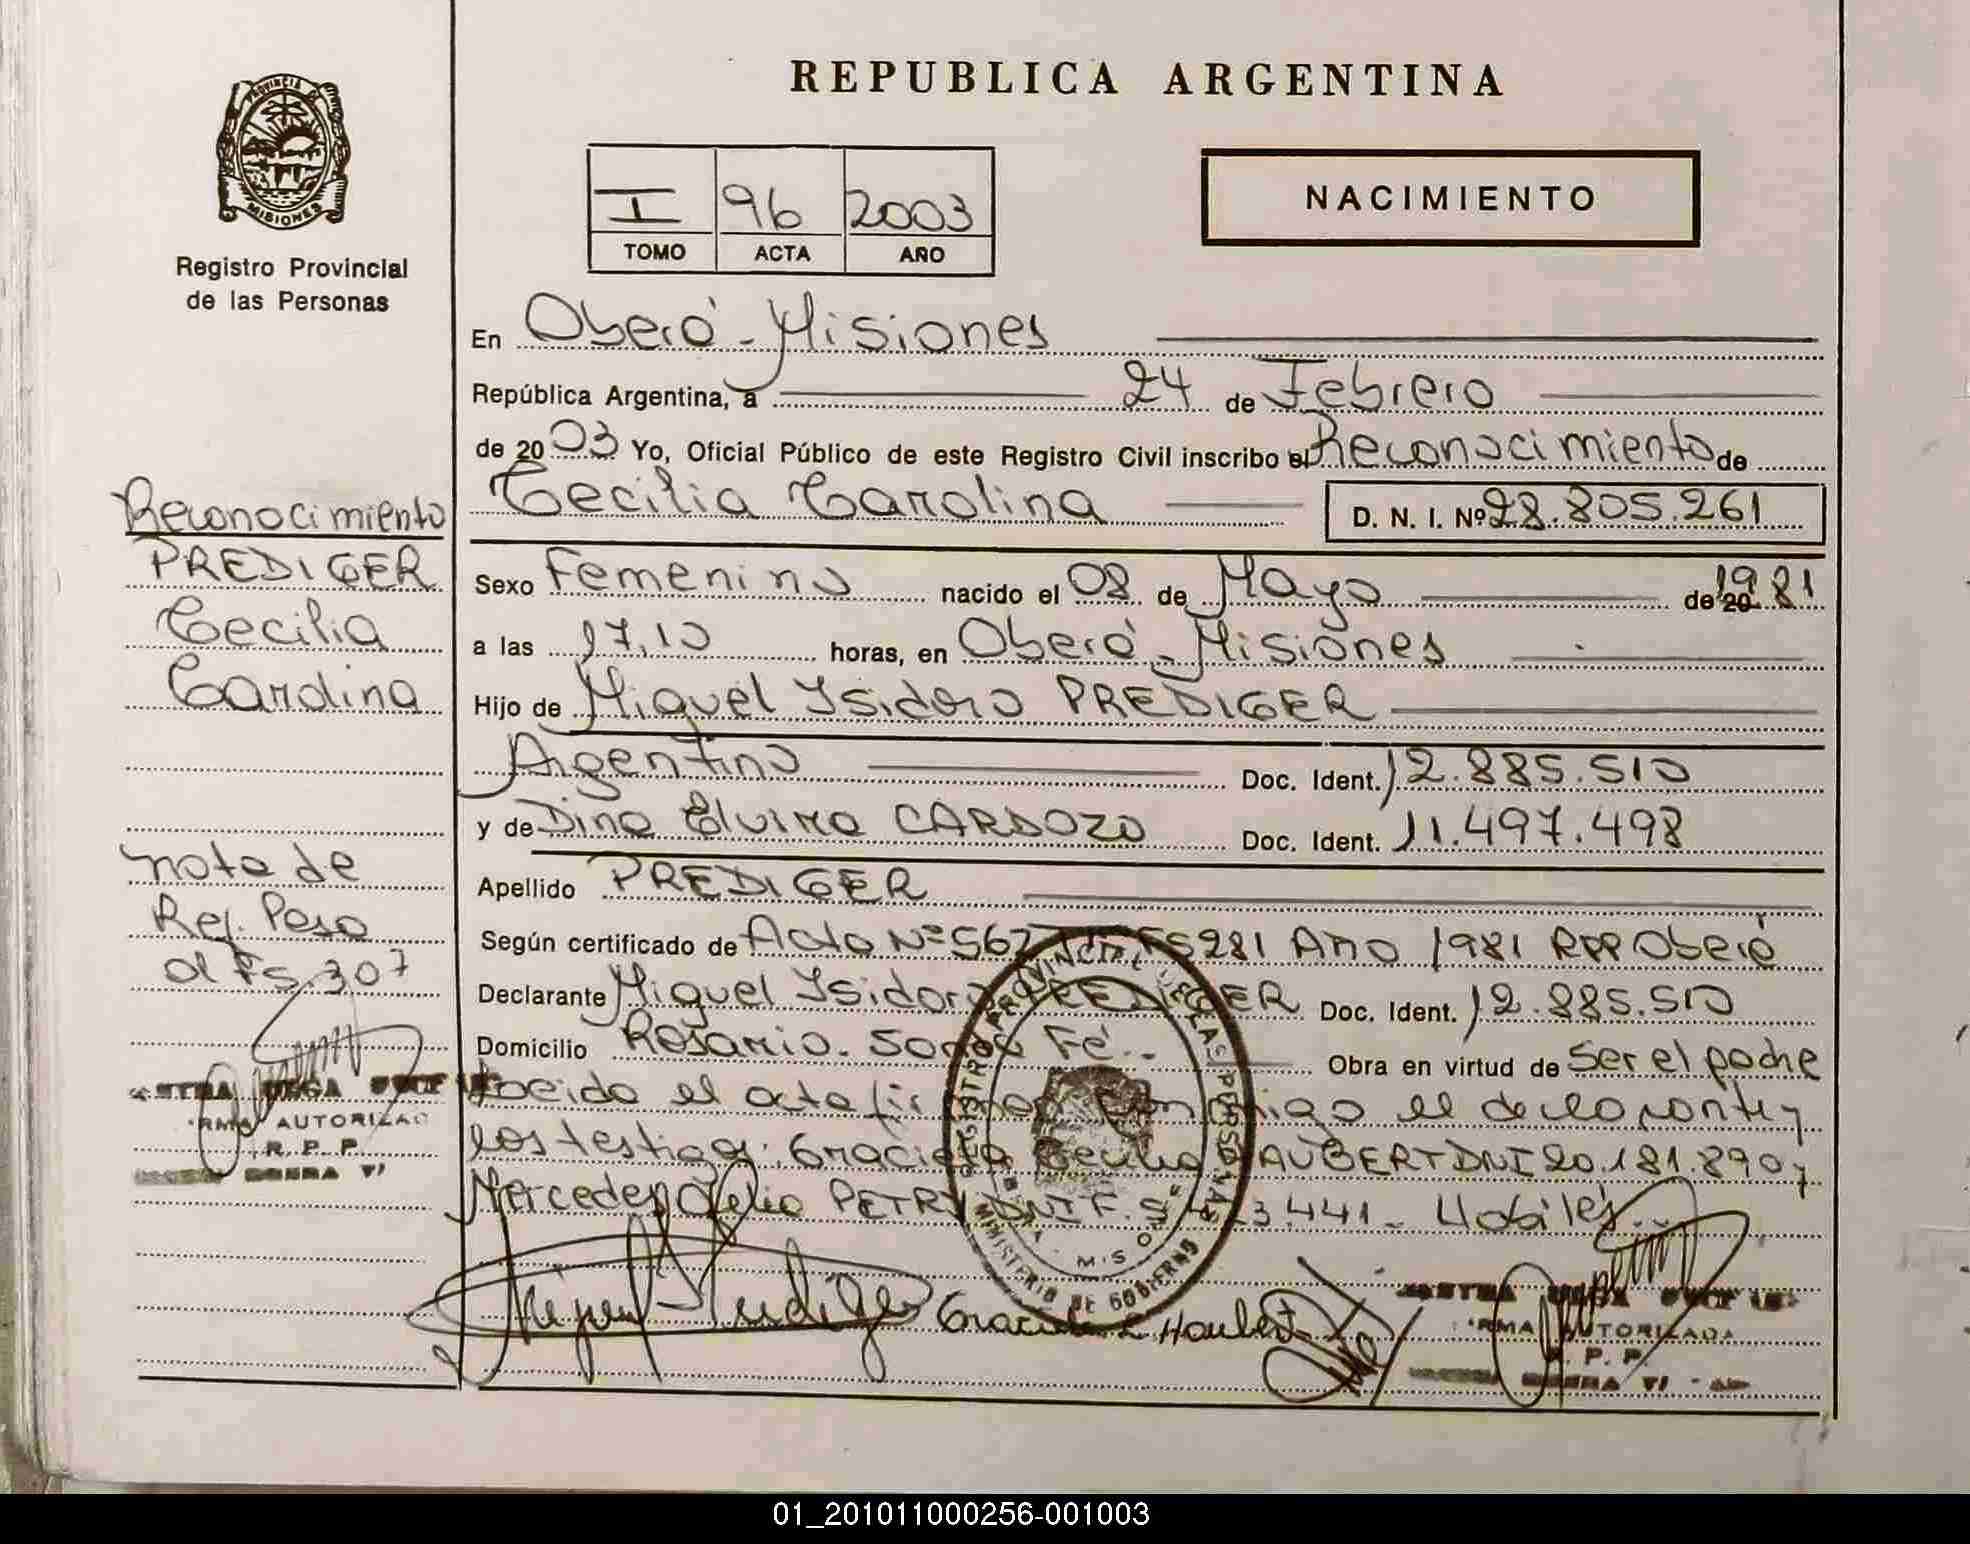 PROVINCIA DE
MISIONES
Registro Provincial
de las Personas
REPUBLICA ARGENTINA
I 96 2003
TOMO ACTA AÑO
NACIMIENTO
En Oberá - Misiones
República Argentina, a 24 de Febrero
de 2003 Yo, Oficial Público de este Registro Civil inscribo el Reconocimiento de
Cecilia Carolina D. N. I. Nº 28.805.261
Sexo Femenino nacido el 08 de Mayo de 20 1981
a las 17,10 horas, en Oberá - Misiones
Hijo de Miguel Isidoro PREDIGER
Argentino Doc. Ident. 12.885.510
y de Dina Elvira CARDOZO Doc. Ident. 11.497.498
Apellido PREDIGER
Según certificado de Acta Nº 567 Fs 281 Año 1981 RPP Oberá
Declarante Miguel Isidoro PREDIGER Doc. Ident. 12.885.510
Domicilio Rosario. Santa Fé.. Obra en virtud de Ser el padre
Leida el acta firman conmigo el declarante y
los testigos: Graciela Cecilia HAUBERT DNI 20.181.890 y
Mercedes Delia PETRY DNI F. 3.441 - Hábiles..
Reconocimiento
PREDIGER
Cecilia
Carolina
nota de
Ref. Pasa
al Fs. 307
FIRMA AUTORIZADA
R. P. P.
REGISTRO PROVINCIAL DE LAS PERSONAS
MINISTERIO DE GOBIERNO
Miguel Prediger Graciela C Haubert
FIRMA AUTORIZADA
R. P. P.
01_201011000256-001003